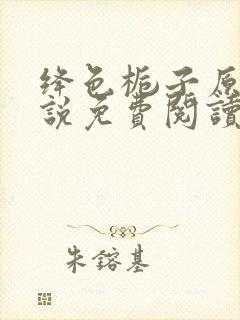 绛色栀子原
說免費閱讀
朱鎔基